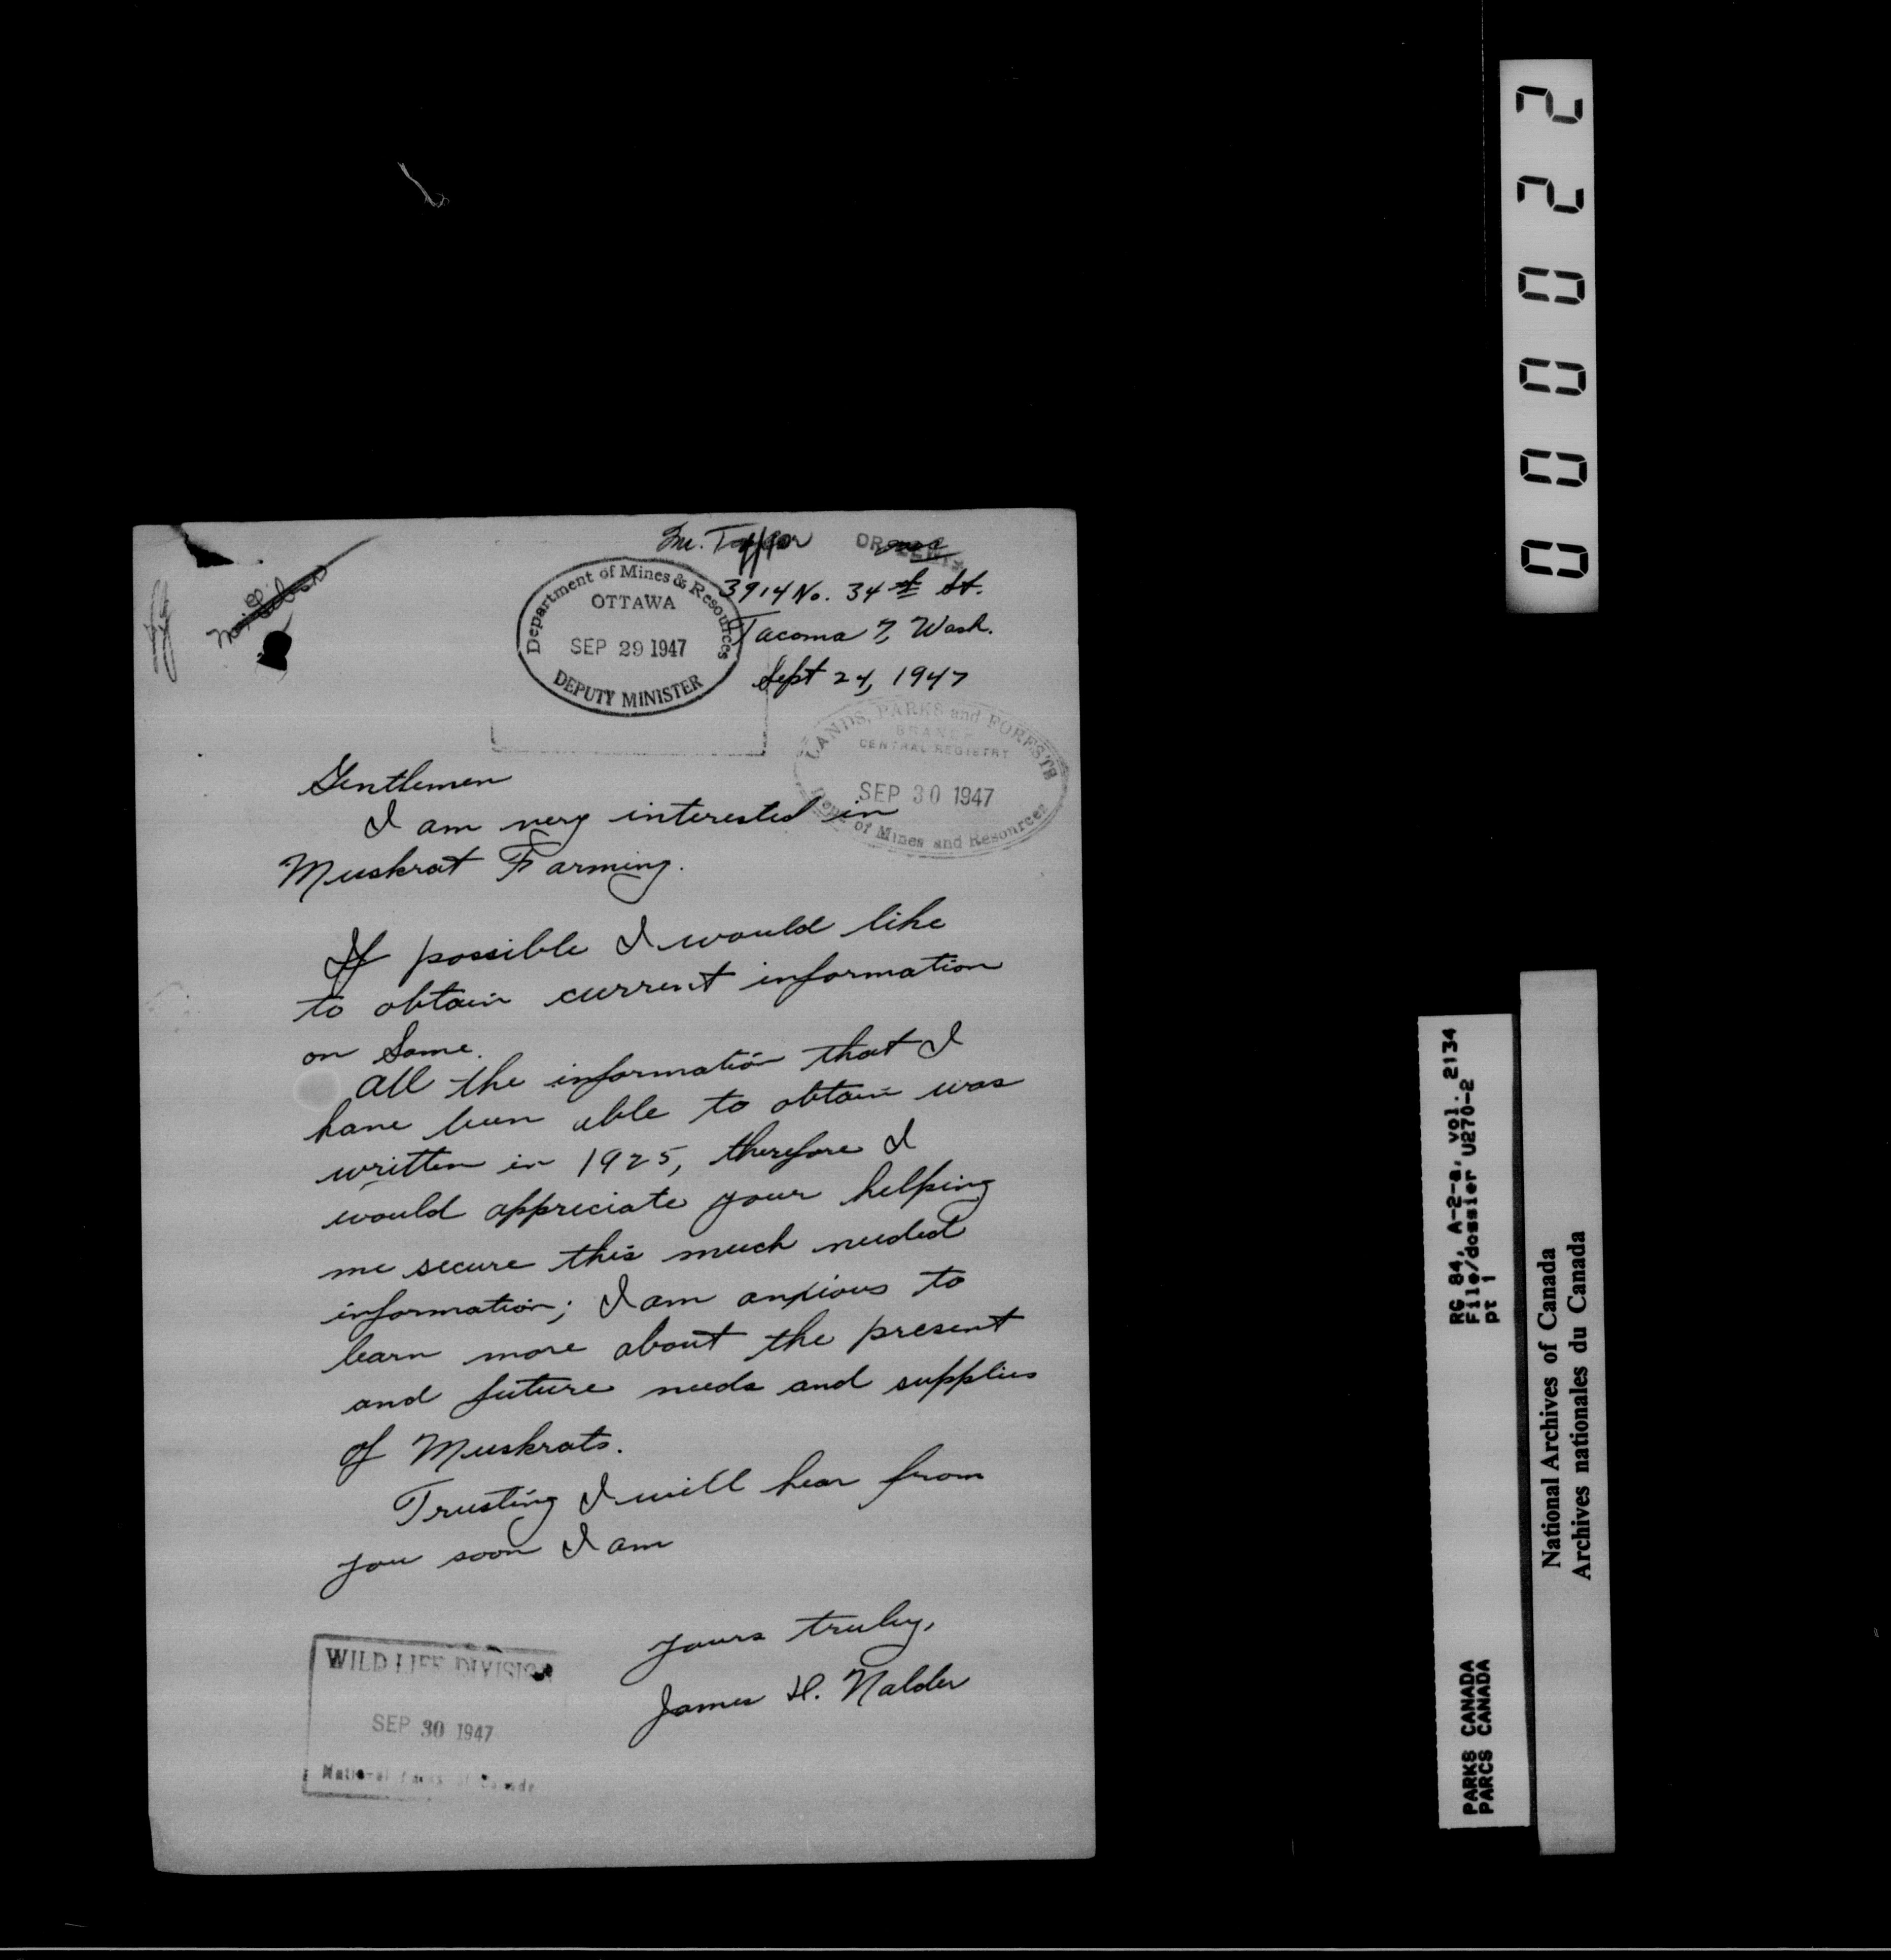 000022
Department of Mines & Resources
OTTAWA
SEP 29 1947
DEPUTY MINISTER
3914 No. 34th St.
Tacoma 7, Wash.
Sept 24, 1947
LANDS, PARKS and FORESTS
BRANCH
CENTRAL REGISTRY
SEP 30 1947
Dept. of Mines and Resources
Gentlemen
I am very interested in
Muskrat Farming.
If possible I would like
to obtain current information
on Same.
All the information that I
have been able to obtain was
written in 1925, therefore I
would appreciate your helping
me secure this much needed
information; I am anxious to
learn more about the present
and future needs and supplies
of Muskrats.
Trusting I will hear from
you soon I am
Yours truly,
James H. Nalder
WILD LIFE DIVISION
SEP 30 1947
National Parks of Canada
RG 84, A-2-a, vol. 2134
File/dossier U270-2
pt 1
PARKS CANADA
PARCS CANADA
National Archives of Canada
Archives nationales du Canada